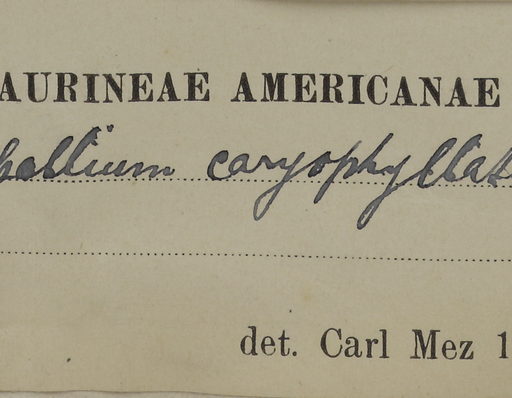 AURINEAE AMERICANAE
pellium caryophyllat
det. Carl Mez 1